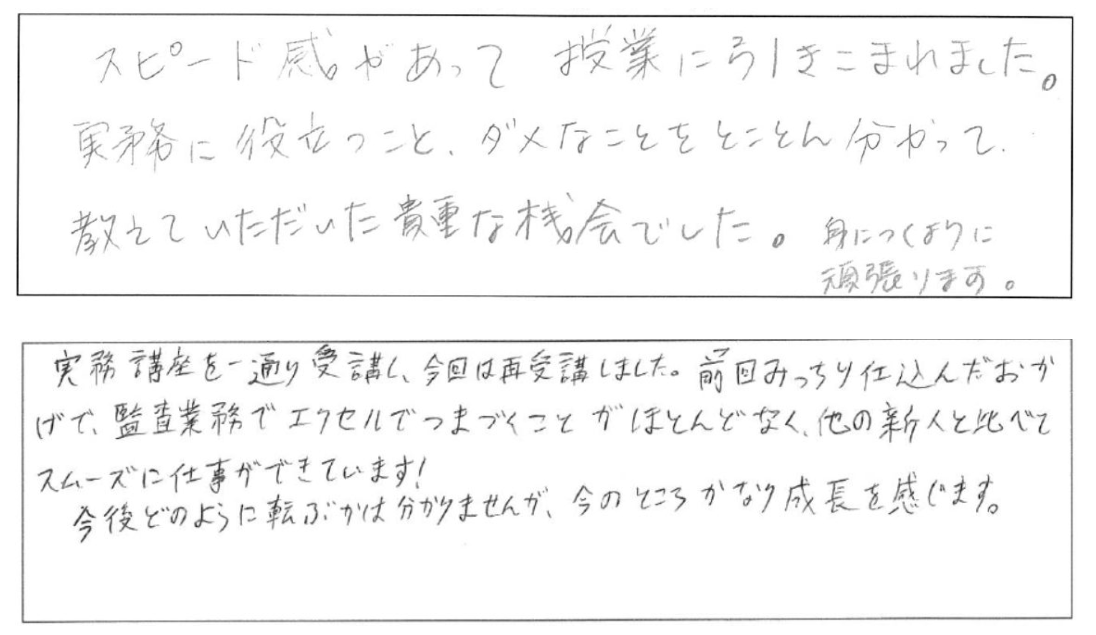 スピード感があって 授業に引きこまれました。
実務に役立つこと、ダメなことをとことん分かって、
教えていただいた貴重な機会でした。身につくように
頑張ります。
実務講座を一通り受講し、今回は再受講しました。前回みっちり仕込んだおか
げで、監査業務でエクセルでつまづくことがほとんどなく、他の新人と比べて
スムーズに仕事ができています!
今後どのように転ぶかは分かりませんが、今のところかなり成長を感じます。